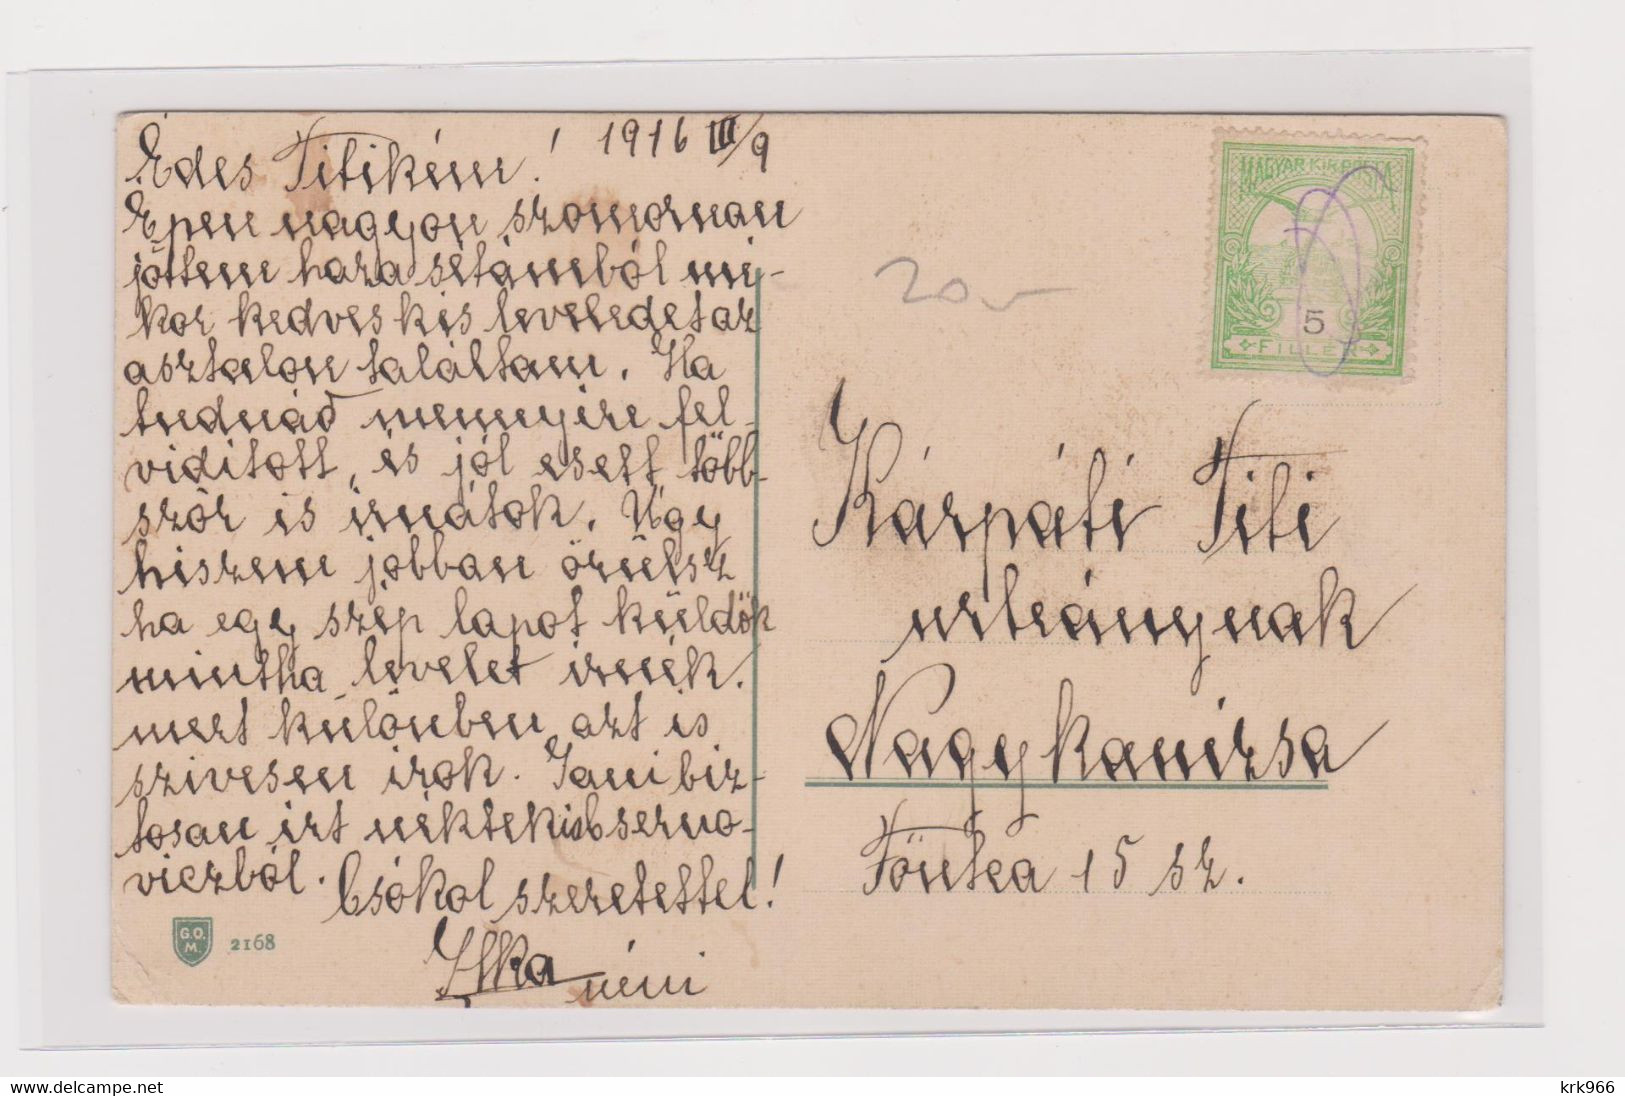 1916 III/9
Édes Titikém!
Épen nagyon szomoruan
jöttem haza sétámból mi-
kor kedves kis leveledet az
asztalon találtam. Ha
tudnád mennyire fel-
vidított, és jól esett több-
ször is írnátok. Úgy
hiszem jobban örülsz
ha egy szép lapot küldök
mintha levelet irnék.
mert különben azt is
szivesen irok. Jani biz-
tosan irt néktek is
viczból. Csókol szeretettel!
Ilka néni
G.O.
M.
2168
MAGYAR KIR. POSTA
5
FILLÉR
20
Kárpáti Titi
urleánynak
Nagykanizsa
Főutca 15 sz.
krk966